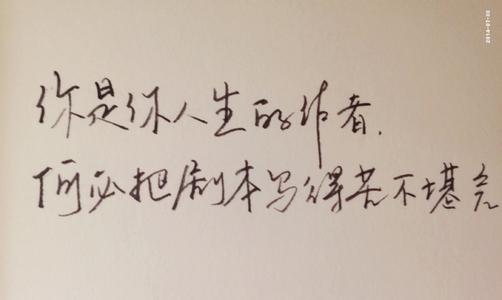 你是你人生的作者.
何必把剧本写得苦不堪言